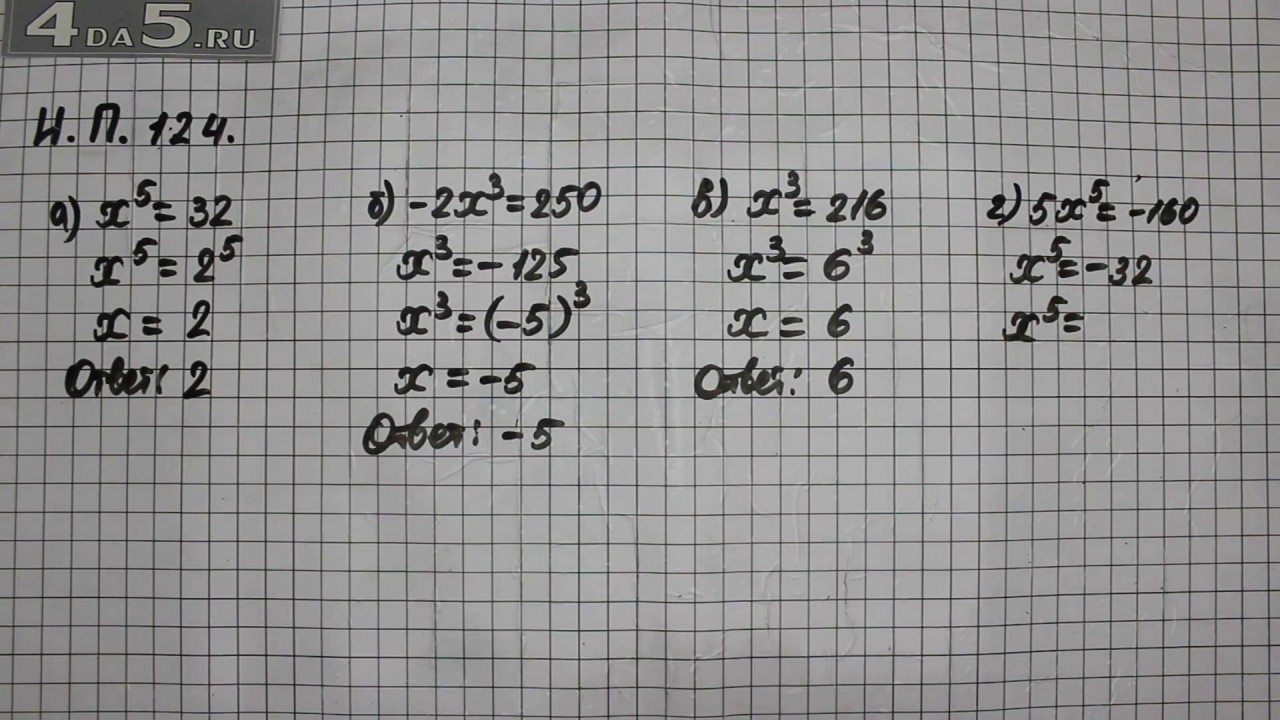 4DA5.RU
Н.П. 124.
а) x⁵ = 32
x⁵ = 2⁵
x = 2
Ответ: 2
б) -2x³ = 250
x³ = -125
x³ = (-5)³
x = -5
Ответ: -5
в) x³ = 216
x³ = 6³
x = 6
Ответ: 6
г) 5x⁵ = -160
x⁵ = -32
x⁵ =